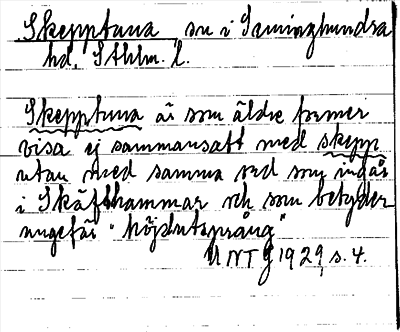 Skepptuna sn i Seminghundra
hd, Sthlm. l.
Skepptuna är som äldre former
visa ej sammansatt med skepp
utan med samma ord som ingår
i Skäfthammar och som betyder
ungefär "höjdutsprång"
UNTg 1929, s. 4.